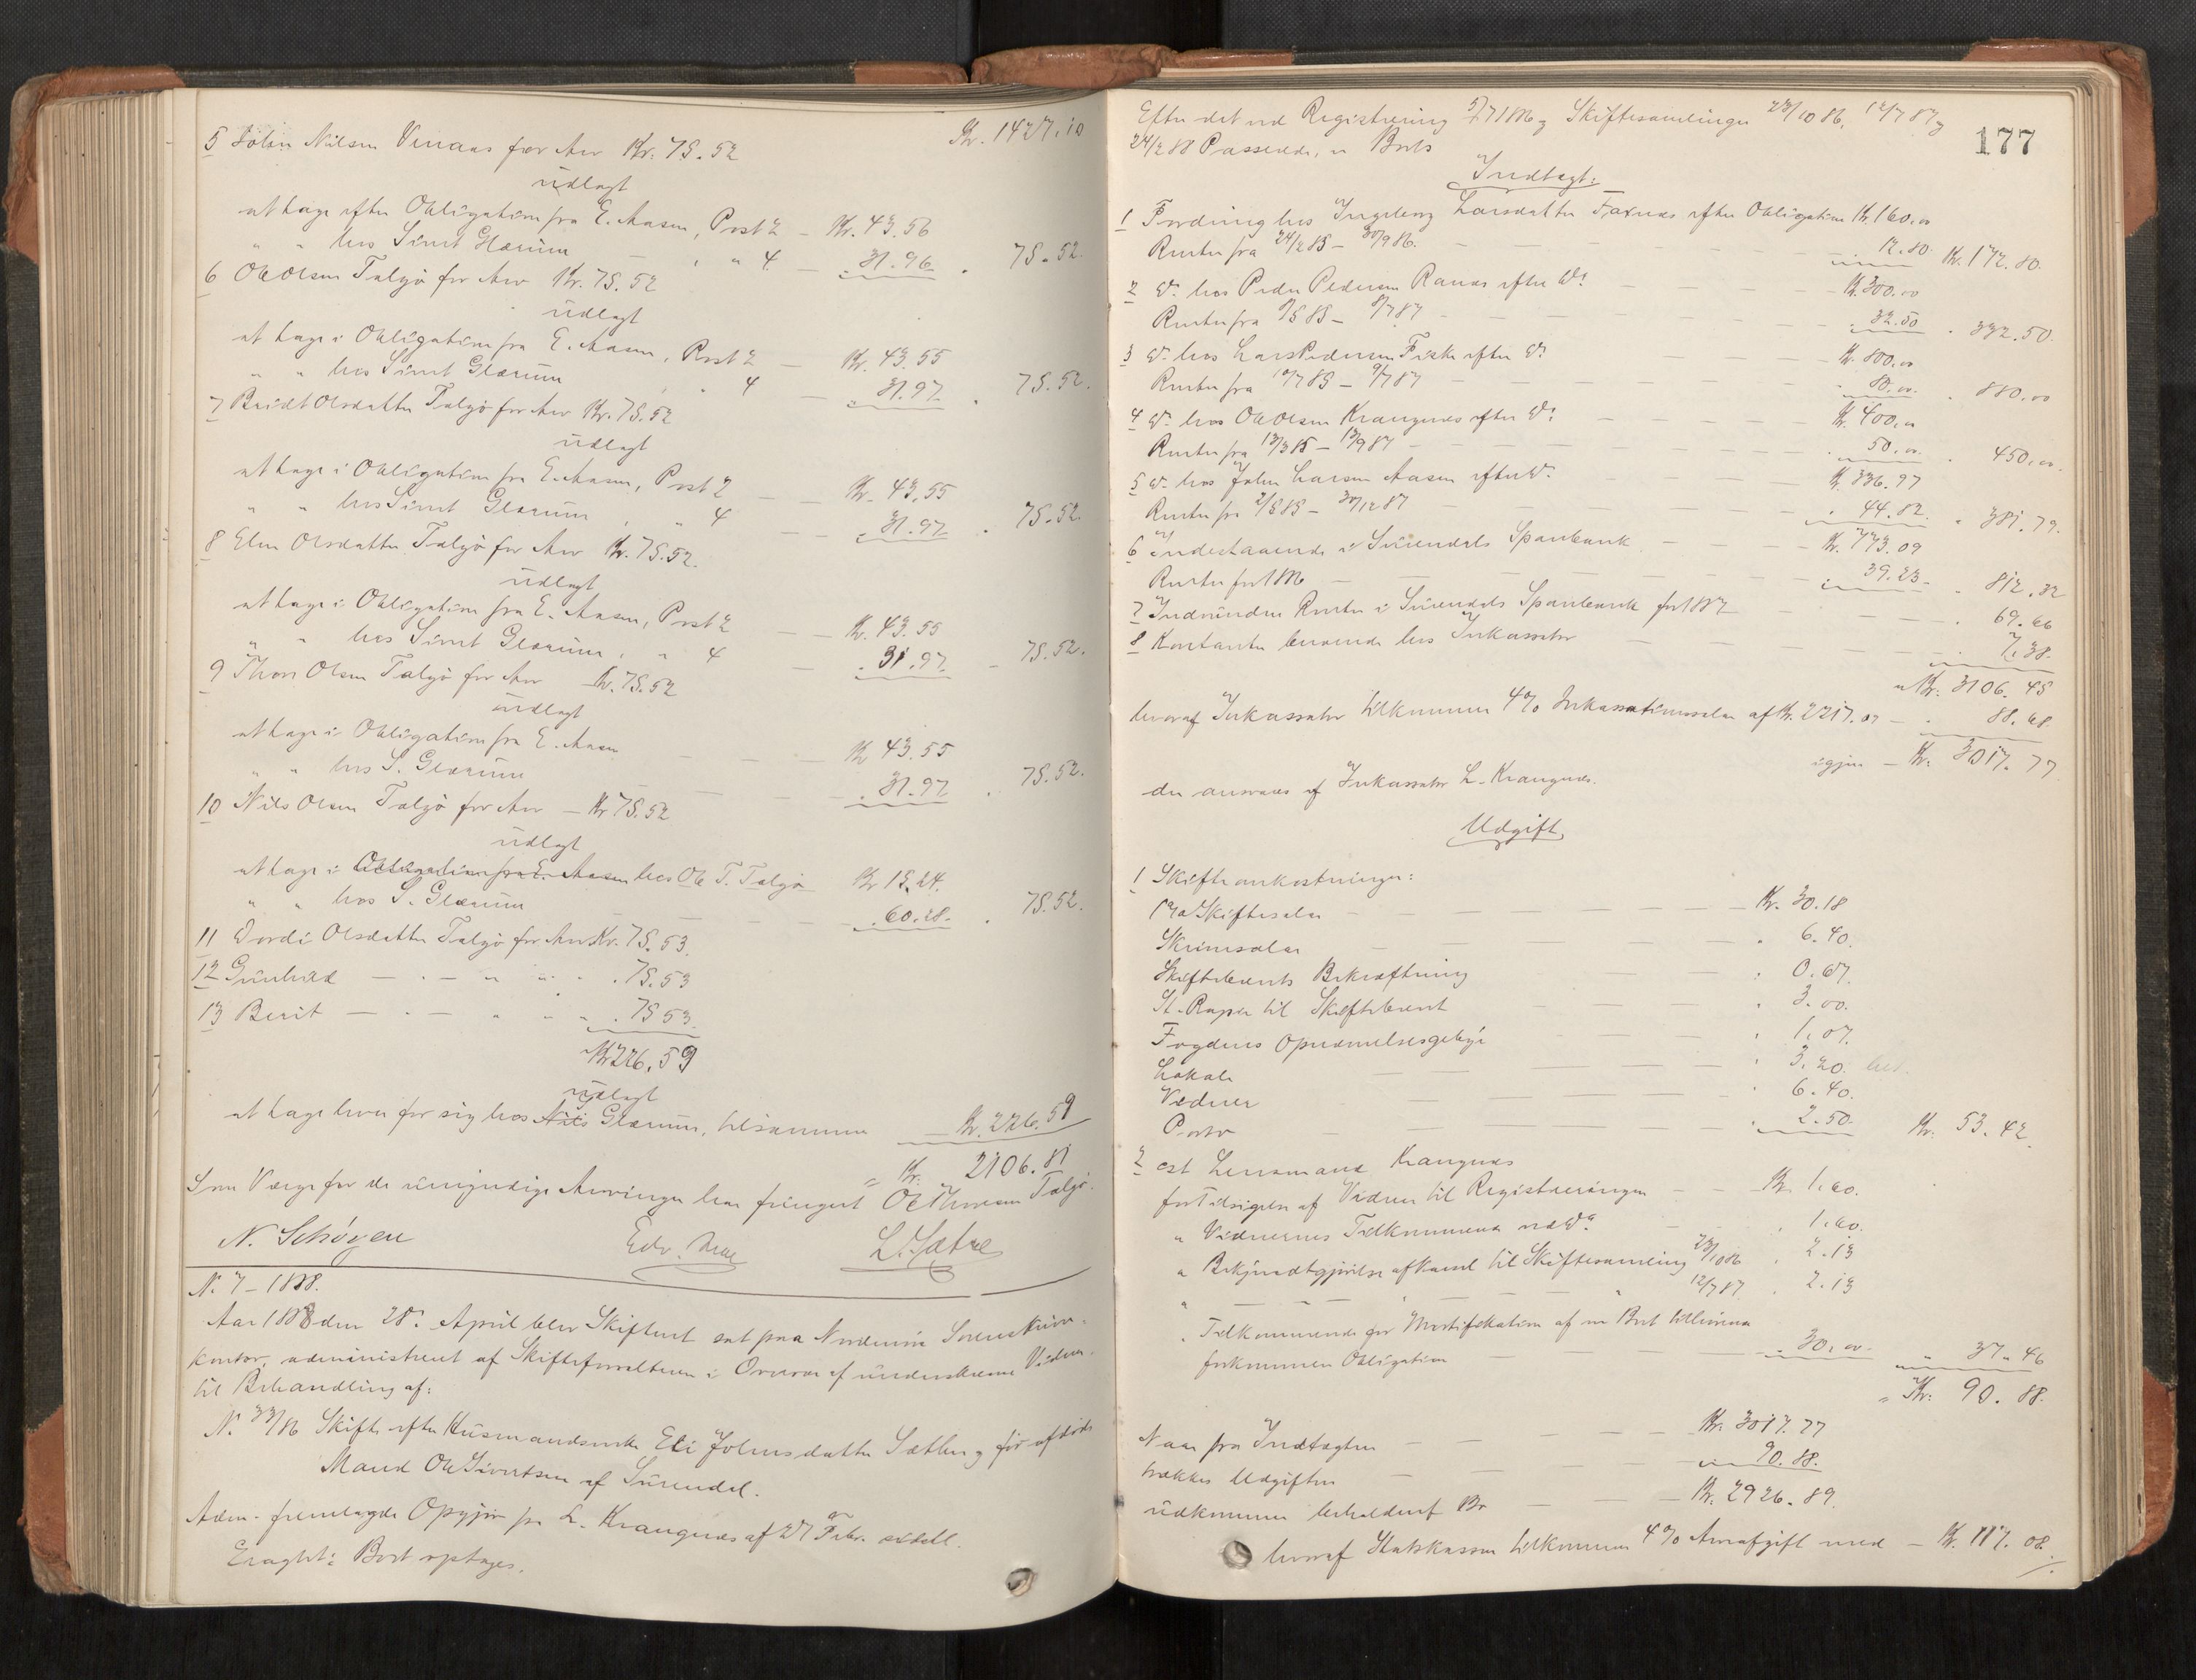 Kr. 1427.10
5 John Nilsen Veraas for Arv Kr. 75.52
udlagt
at tage efter Obligation fra E. Aasen, Post 2 - Kr. 43.56
" " hos Sivert Glærum - " " 4 - " 31.96 . 75.52.
6 Ole Olsen Talgø for Arv Kr. 75.52
udlagt
at tage i Obligation fra E. Aasen, Post 2 - Kr. 43.55
" " hos Sivert Glærum " " 4 - " 31.97 . 75.52.
7 Beridt Olsdatter Talgø for Arv Kr. 75.52
udlagt
at tage i Obligation fra E. Aasen, Post 2 - Kr. 43.55
" " hos Sivert Glærum, " 4 - " 31.97 . 75.52.
8 Elen Olsdatter Talgø for Arv Kr. 75.52.
udlagt
at tage i Obligation fra E. Aasen, Post 2 - Kr. 43.55
" " hos Sivert Glærum, " 4 - . 31.97 - 75.52.
9 Thore Olsen Talgø for Arv - Kr. 75.52
udlagt
at tage i Obligation fra E. Aasen - Kr 43.55
" " hos S. Glærum - . 31.97 . 75.52.
10 Nils Olsen Talgø for Arv - Kr 75.52
udlagt
at tage i Obligation fra E. Aasen hos Ole T. Talgø Kr 15.24.
" " hos S. Glærum - . 60.28. . 75.52.
11 Dordi Olsdatter Talgø for Arv Kr. 75.53.
12 Gunhild - . - " " " . 75.53
13 Berit - . - " " " . 75 53.
Kr 226.59
udlagt
at tage hver for sig hos Nils Glærum, tilsammen - Kr. 226.59
= Kr. 2106.81
Som Værge for de umyndige Arvinger har fungeret Ole Thoresen Talgø.
N. Schöyen Edv. L. Sætre
N. 7 - 1888.
Aar 1888 den 28. April blev Skifteret sat paa Nordmøre Sorenskriver-
kontor, administreret af Skifteforvalteren i Overvær af underskrevne Vidner.
til Behandling af:
N. 33/86 Skifte efter Husmandsenke Eli Johnsdatter Sætter og før afdøde
Mand Ole Sivertsen af Surendal.
Adm. fremlagde Opgjør fra L. Krangnæs af 27 Febr. sidstl.
Eragtet: Bort optages.
177
Efter det ved Registrering 5/7 1886 og Skiftesamlinger 23/10 86, 12/7 87 og
24/2 88 Passerede, er Boets
Indtægt:
1 Fordring hos Ingeborg Larsdatter Faxnes efter Obligation Kr. 160.00
Renter fra 24/2 85 - 30/9 86. - 12.80. Kr. 172.80.
2 Do. hos Peder Pedersen Ranes efter Do. - Kr. 300.00
Renter fra 8/5 85 - 8/7 87 - 32.50 . 332.50.
3 Do. hos Lars Pedersen Fiske efter Do. - Kr. 800.00
Renter fra 10/7 85 - 9/7 87 - . 80.00. . 880.00
4 Do. hos Ole Olsen Krangnæs efter Do. - Kr. 400.00
Renter fra 13/3 85 - 13/9 87 - . 50.00. . 450.00.
5 Do. hos John Larsen Aasen efter Do. - Kr. 336.97
Renter fra 2/5 85 - 30/12 87 - . 44.82. . 381.79.
6 Indestaaende i Surendals Sparebank - Kr. 773.09
Renter for 1886 - 39.23 - . 812.32
7 Indvundne Renter i Surendals Sparebank for 1887 - . 69.66
8 Kontante beroende hos Inkassator - 7.38.
= Kr. 3106.45
hvoraf Inkassator tilkommer 4% Inkassationssalær af Kr. 2217.09 - . 88.68.
igjen - Kr. 3017.77
der ansvares af Inkassator L. Krangnæs.
Udgift
1 Skifteomkostninger:
1% Skiftesalær - Kr. 30.18
Skriversalær - . 6.40.
Skiftebrevets Bekræftning - . 0.67.
St. Papir til Skiftebrevet - . 3.00.
Fogdens Opnævnelsesgebyr - . 1.07.
Lokale - . 3.20.
Vidner - . 6.40.
Porto - . 2.50. Kr. 53.42.
2 cst Lensmand Krangnæs
for Tilsigelse af Vidner til Registreringen - Kr. 1.60.
" Vidnernes Tilkommende ved Do. . 1.60.
" Bekjendtgjørelse af Varsel til Skiftesamling 23/10 86 . 2.13
" - - " 12/7 87. . 2.13
" Tilkommende for Mortifikation af en Boet tilhørende
forkommen Obligation - . 30.00. - " 37.46
= Kr. 90.88.
Naar fra Indtægten - Kr. 3017.77
trækkes Udgiften - 90.88.
udkommer beholdent Bo - Kr. 2926.89.
hvoraf Statskassen tilkommer 4% Arveafgift med - Kr. 117.08.